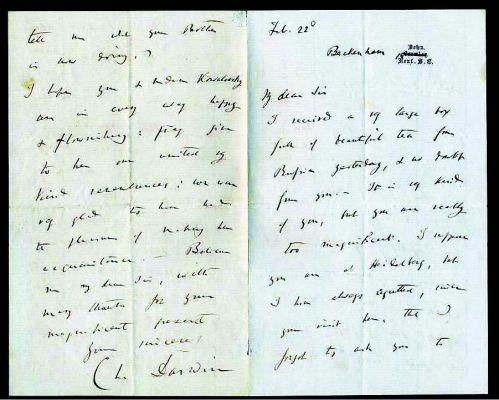 Feb. 22d
Down,
Beckenham
Kent. S.E.
My dear Sir
I received a vy large box
full of beautiful tea from
Russia yesterday, & no doubt
from you. — It is vy kind
of you, but you are really
too magnificent. I suppose
you are at Heidelberg, but
I have always regretted, since
your visit here, that I
forgot to ask you to
tell me what your Brother
is now doing.?
I hope you & Madam Kowalevsky
are in every way happy
& flourishing: pray give
to her our united vy
kind remembrances: we were
vy glad to have had
the pleasure of making her
acquaintance. — Believe
me my dear Sir, with
many thanks for your
magnificent present
Yours sincerely
Ch. Darwin